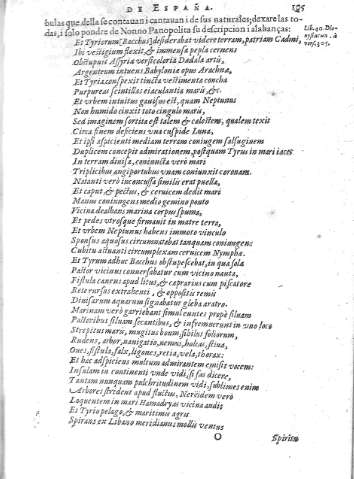 DE ESPAÑA. 105
bulas que della se contauan i cantauan i de sus naturales; dexare las to-
das, i solo pondre de Nonno Panopolita su descripcion i alabanças:
Lib. 40. Dio-
Et Tyriorum Bacchus desiderabat videre terram, patriam Cadmi,
Ibi vestigium flexit, & immensa pepla cernens
Obstupuit Assyria versicoloria Dædala artis,
Argenteum intuens Babyloniæ opus Arachnæ,
Et Tyria conspexit tincta vestimenta concha
Purpureas scintillas eiaculantia maris &c.
Et vrbem intuitus gauisus est, quam Neptunus
Non humido cinxit toto cingulo maris,
Sed imaginem sortita est talem è cœlo, qualem texit
Circa finem deficiens vna cuspide Luna,
Et ipsi aspicienti mediam terram coniugem salsuginem
Duplicem concepit admirationem, postquam Tyrus in mari iacet
In terram diuisa, coniuncta verò mari
Triplicibus angiportubus vnam coniunxit coronam.
Natanti verò inconcussa similis erat puella,
Et caput & pectus, & ceruicem dedit mari
Manus contingens medio gemino ponto
Vicina dealbans marina corpus spuma,
Et pedes vtrosque firmauit in matre terra,
Et vrbem Neptunus habens immoto vinculo
Sponsus aquosus circumnatabat tanquam coniungens
Cubitu astuanti circumplexam ceruicem Nymphæ.
Et Tyrum adhuc Bacchus obstupescebat, in qua sola
Pastor vicinus conuersabatur cum vicino nauta,
Fistula canens apud litus, & caprarius cum piscatore
Rete rursus extrahenti, & oppositis remis
Diuisarum aquarum sigadatur gleba aratro.
Marinam verò garriebant simul euntes propè siluam
Pastoribus siluam secantibus, & infremuerunt in vno loco
Strepitus maris, mugitus boum, sibilus foliorum,
Rudens, arbor, nauigatio, nemus, holcas, stiua,
Oues, fistula, falx, ligones, retia, vela, thorax:
Et hac adspiciens multum admirantem emisit vocem:
Insulam in continenti vnde vidi, si fas dicere,
Tantam nunquam pulchritudinem vidi, sublimes enim
Arbores strident apud fluctus, Nereidem verò
Loquentem in mari Hamadryas vicina audit
Et Tyrio pelago, & maritimis agris
Spirans ex Libano meridianus mollis ventus
O Spiritu